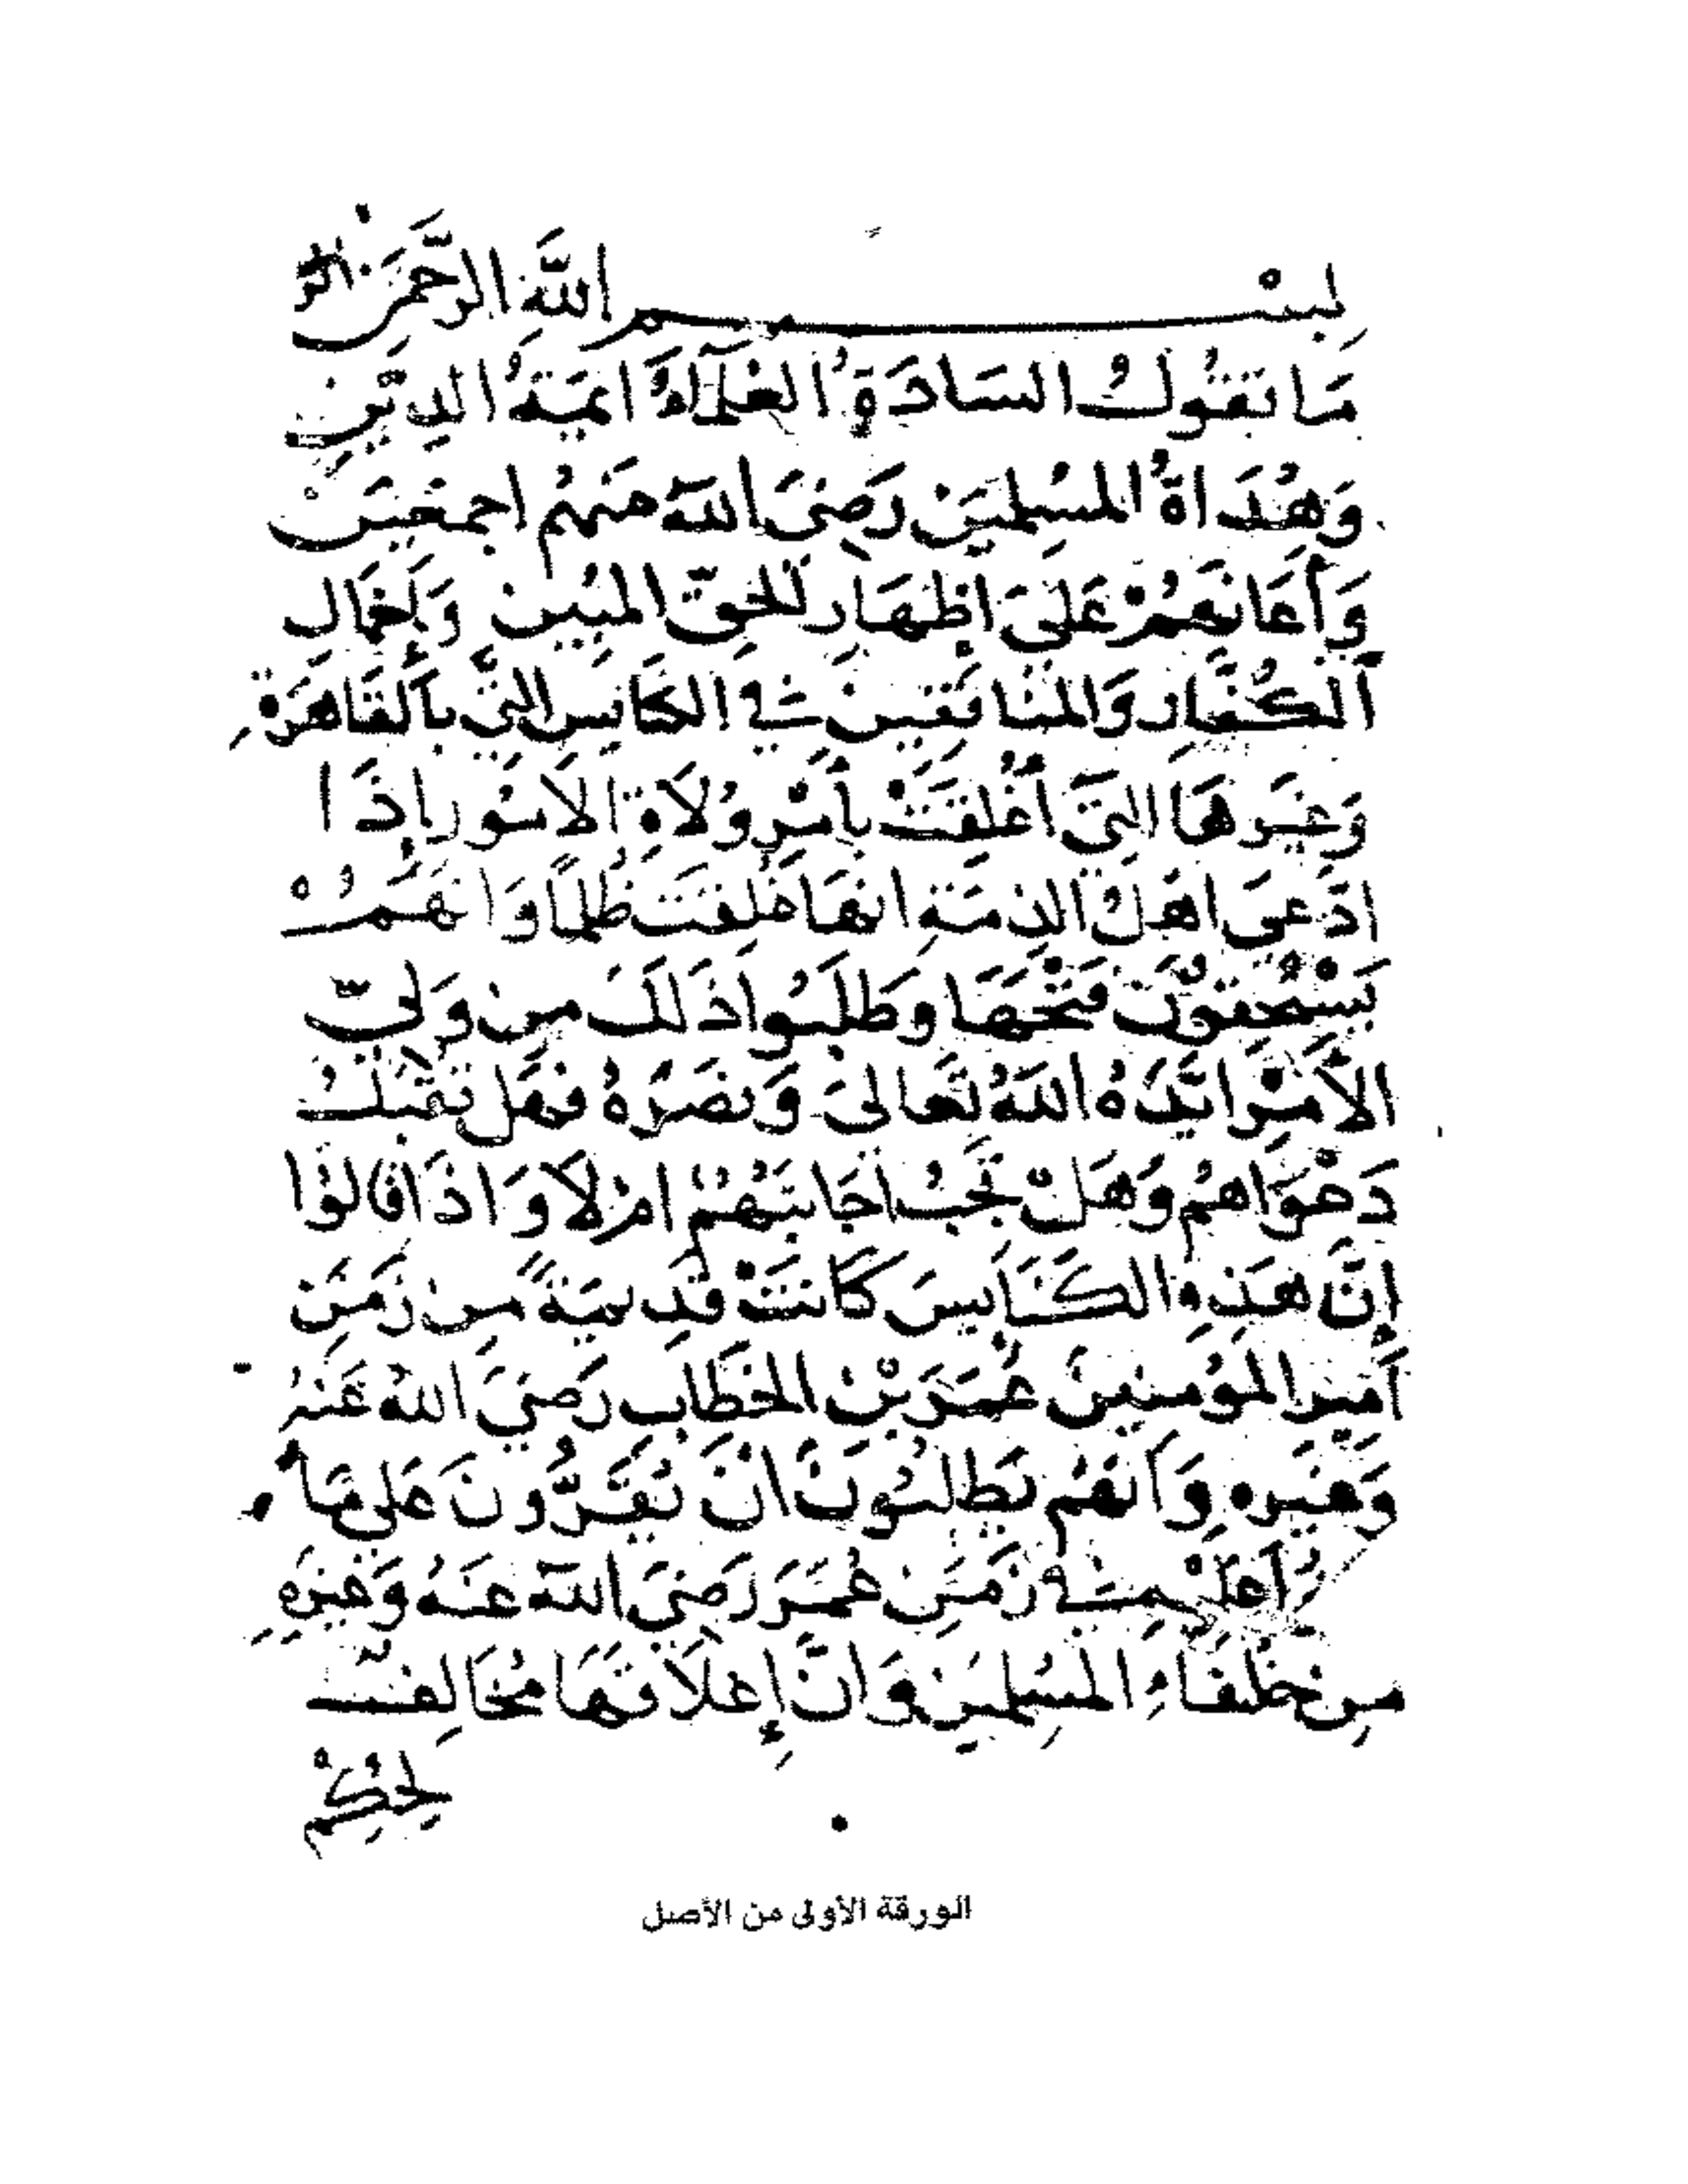 بِسْم اللَّهِ الرَّحْمَن الر
مَا تَقُولُ السَادَةُ العُلَمَآءُ ايِمَةُ الدِين
وَهُدَاةُ المُسْلِمين رَضىَ الله عنهُم اجمعين
وَأعَانَهُمْ عَلىَ اظهَار الحقّ المبُين وَإخمَال
الكُفَّار وَالمنَافقين فِي الكنَايس التي بالقَاهَرة
وَغَيرهَا التى أُغْلِقَتْ بأمْر وُلاَةِ الأمُور إذَا
ادَّعى اهْلُ الذِمَةِ انهَا غُلِقَتْ ظُلماً وَانهَمُ
يَسْتحِقوُّن فَتْحَهَا وطَلَبُوا ذَلَكَ مِن وَلىّ
الأَمْر ايَّدَهُ اللهُ تعَالىَ وَنصَرَهُ فهَل تُقبَلُ
دَعْوَاهُم وَهَلْ تجَبُ اجَابَتهُمْ امْ لاَ وَاذَا قالوُا
إنَّ هَذِهِ الكَنَايسَ كَانَتْ قَدِيمَةً مِن زَمَنِ
أَمِير المؤُمنينَ عُمَرَ بْن الخطَاب رَضىَ اللهُ عَنهُ
وَغيَره وَانهَُم يَطلبُونَ انْ يُقَرُّونَ عَلى مَا
عَلَيْهِ فِي زَمَن عُمَرَ رَضىَ الله عنَهُ وَغيرَهِ
مِن خُلفَاءِ المسُلمِين وَانَّ إغلاَقهَا مُخَالِفٌ
لِحُكْمِ
الورقة الأولى من الأصل